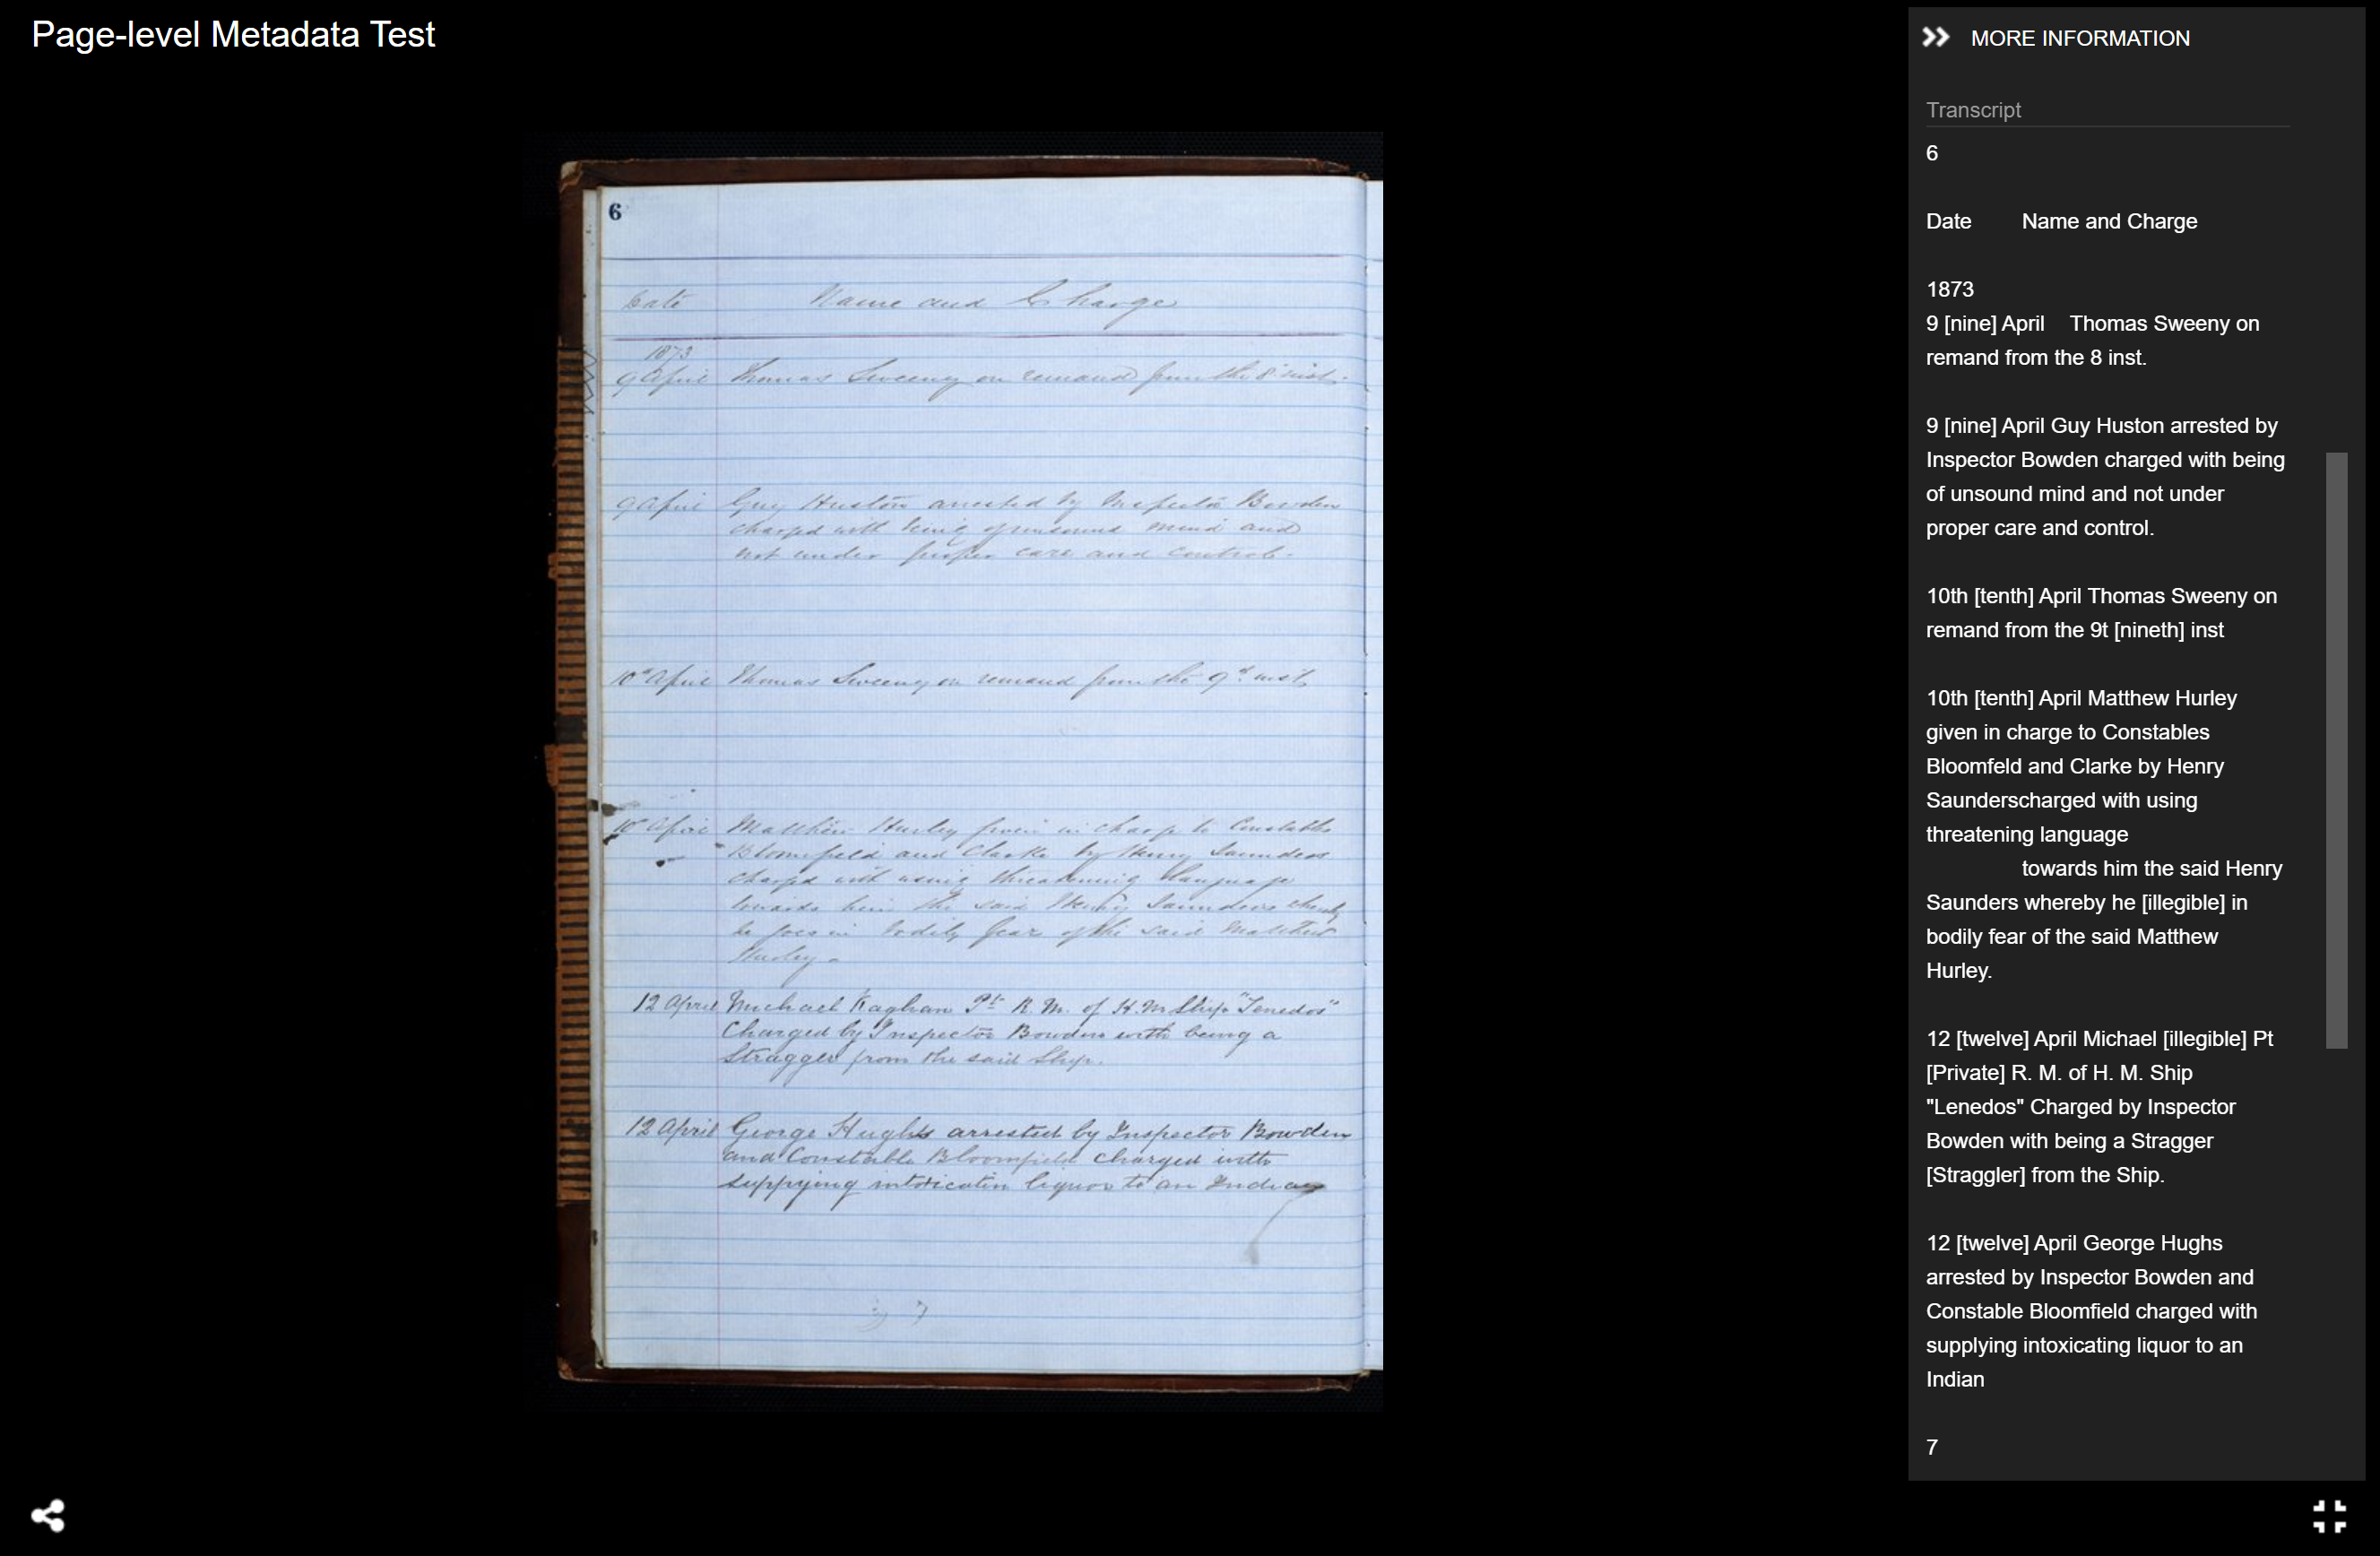 Page-level Metadata Test
6
Date Name and Charge
1873
9 April Thomas Sweeny on remand from the 8 inst.
9 April Guy Huston arrested by Inspector Bowden
charged with being of unsound mind and
not under proper care and control.
10th April Thomas Sweeny on remand from the 9th inst
10th April Matthew Hurley given in charge to Constables
Bloomfield and Clarke by Henry Saunders
charged with using threatening language
towards him the said Henry Saunders whereby
he goes in bodily fear of the said Matthew
Hurley.
12 April Michael Pt R. M. of H. M. Ship "Tenedos"
Charged by Inspector Bowden with being a
Straggler from the said Ship.
12 April George Hughs arrested by Inspector Bowden
and Constable Bloomfield charged with
supplying intoxicatin liquor to an Indian
MORE INFORMATION
Transcript
6
Date Name and Charge
1873
9 [nine] April Thomas Sweeny on
remand from the 8 inst.
9 [nine] April Guy Huston arrested by
Inspector Bowden charged with being
of unsound mind and not under
proper care and control.
10th [tenth] April Thomas Sweeny on
remand from the 9t [nineth] inst
10th [tenth] April Matthew Hurley
given in charge to Constables
Bloomfeld and Clarke by Henry
Saunderscharged with using
threatening language
towards him the said Henry
Saunders whereby he [illegible] in
bodily fear of the said Matthew
Hurley.
12 [twelve] April Michael [illegible] Pt
[Private] R. M. of H. M. Ship
"Lenedos" Charged by Inspector
Bowden with being a Stragger
[Straggler] from the Ship.
12 [twelve] April George Hughs
arrested by Inspector Bowden and
Constable Bloomfield charged with
supplying intoxicating liquor to an
Indian
7